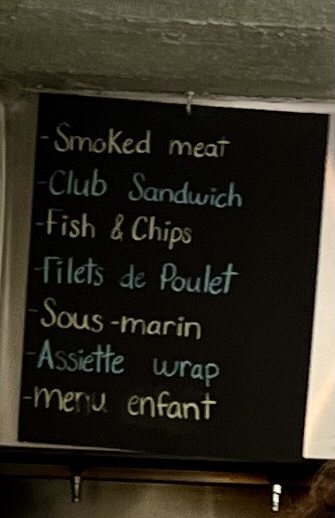 - Smoked meat
- Club Sandwich
- Fish & Chips
- Filets de Poulet
- Sous-marin
- Assiette wrap
- menu enfant